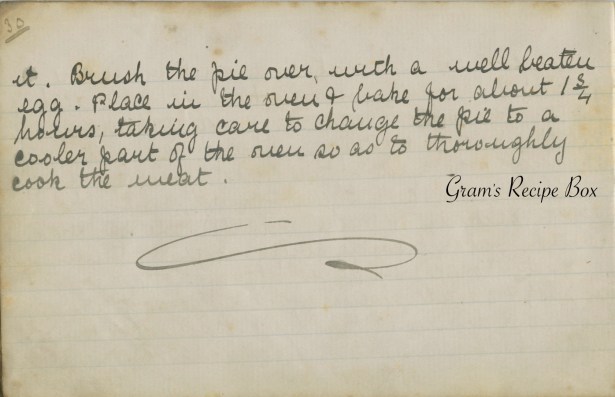 30
it. Brush the pie over, with a well beaten
egg. Place in the oven & bake for about 1 3/4
hours, taking care to change the pie to a
cooler part of the oven so as to thoroughly
cook the meat.
Gram's Recipe Box